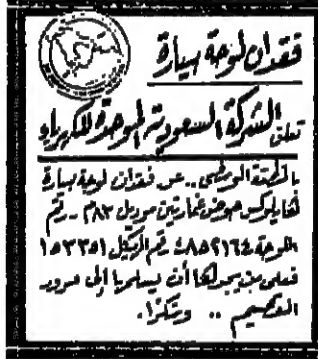 فقدان لوحة سيارة
تعلن الشركة السعودية الموحدة للكهرباء
بالمنطقة الوسطى .. عن فقدان لوحة سيارة
هايلوكس حوض غمارتين موديل ٨٣م - رقم
اللوحة ٨٥٢١٦٤ رقم الهيكل ١٥٣٣٥١
فعلى من يجدها أن يسلمها إلى مرور
القصيم .. وشكرا.